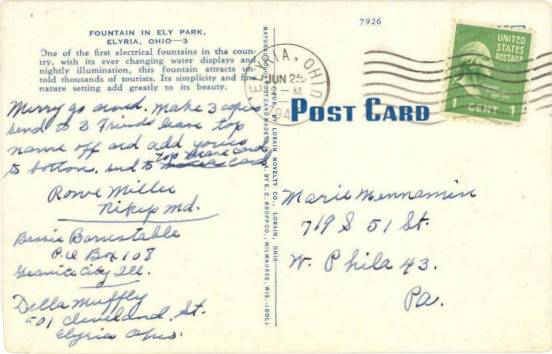 FOUNTAIN IN ELY PARK,
ELYRIA, OHIO—3
One of the first electrical fountains in the coun-
try, with its ever changing water displays and
nightly illumination, this fountain attracts un-
told thousands of tourists. Its simplicity and fine
nature setting add greatly to its beauty.
Merry go round. Make 3 copies
send to 3 Friends leave top
name off and add yours
to bottom. and to Top Name card
Rowe Miller
Rikep Md.
Bessie Barnstable
P.O Box 108
City Ill.
Della Muffly
501 Cleveland St.
Elyria Ohio.
7926
ELYRIA, OHIO
JUN 25
2 - M
194
UNITED
STATES
POSTAGE
1 CENT 1
POST CARD
Marie Mennamin
719 S 51 St.
W. Phila 43.
Pa.